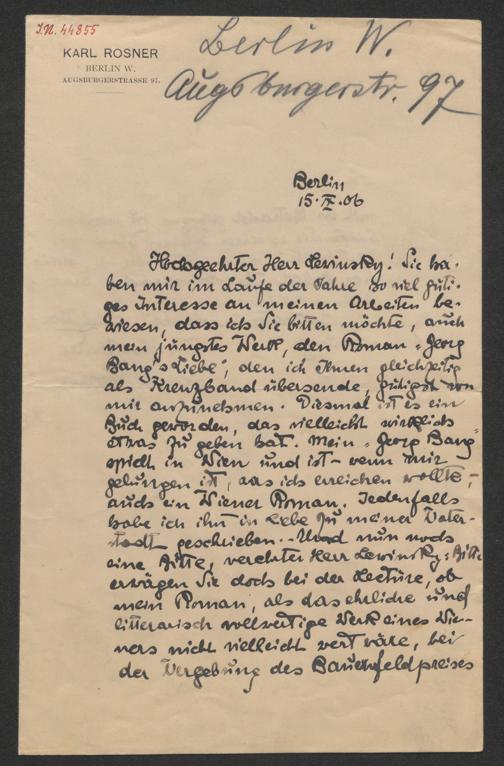 I.N. 44855
KARL ROSNER
BERLIN W.
AUGSBURGERSTRASSE 97.
Berlin W.
Augsburgerstr. 97
Berlin
15. IX. 06
Hochgeehrter Herr Lewinsky! Sie ha-
ben mir im Laufe der Jahre so viel güti-
ges Interesse an meinen Arbeiten be-
wiesen, dass ich Sie bitten möchte, auch
mein jüngstes Werk, den Roman „Georg
Bang's Liebe", den ich Ihnen gleichzeitig
als Kreuzband übersende, gütigst von
mir anzunehmen. Diesmal ist es ein
Buch geworden, das vielleicht wirklich
etwas zu geben hat. Mein „Georg Bang"
spielt in Wien und ist – wenn mir
gelungen ist, was ich erreichen wollte, –
auch ein Wiener Roman. Jedenfalls
habe ich ihn in Liebe zu meiner Vater-
stadt geschrieben. – Und nun noch
eine Bitte, verehrter Herr Lewinsky: Bitte
erwägen Sie doch bei der Lectüre, ob
mein Roman, als das ehrliche und
litterarisch vollwertige Werk eines Wie-
ners nicht vielleicht wert wäre, bei
der Vergebung des Bauernfeldpreises